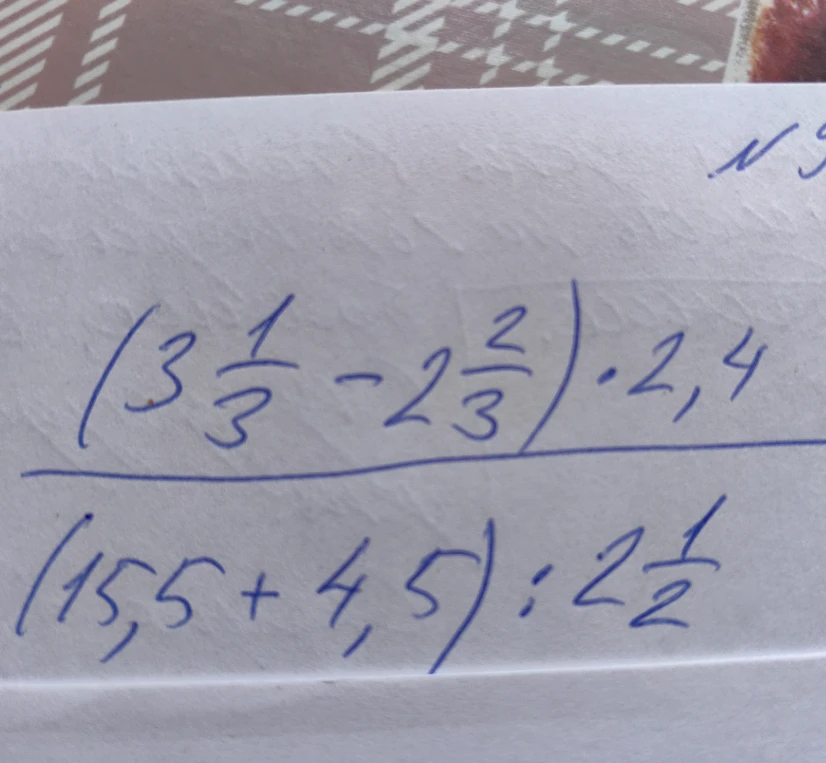 (3 1/3 - 2 2/3) · 2,4
(15,5 + 4,5) : 2 1/2